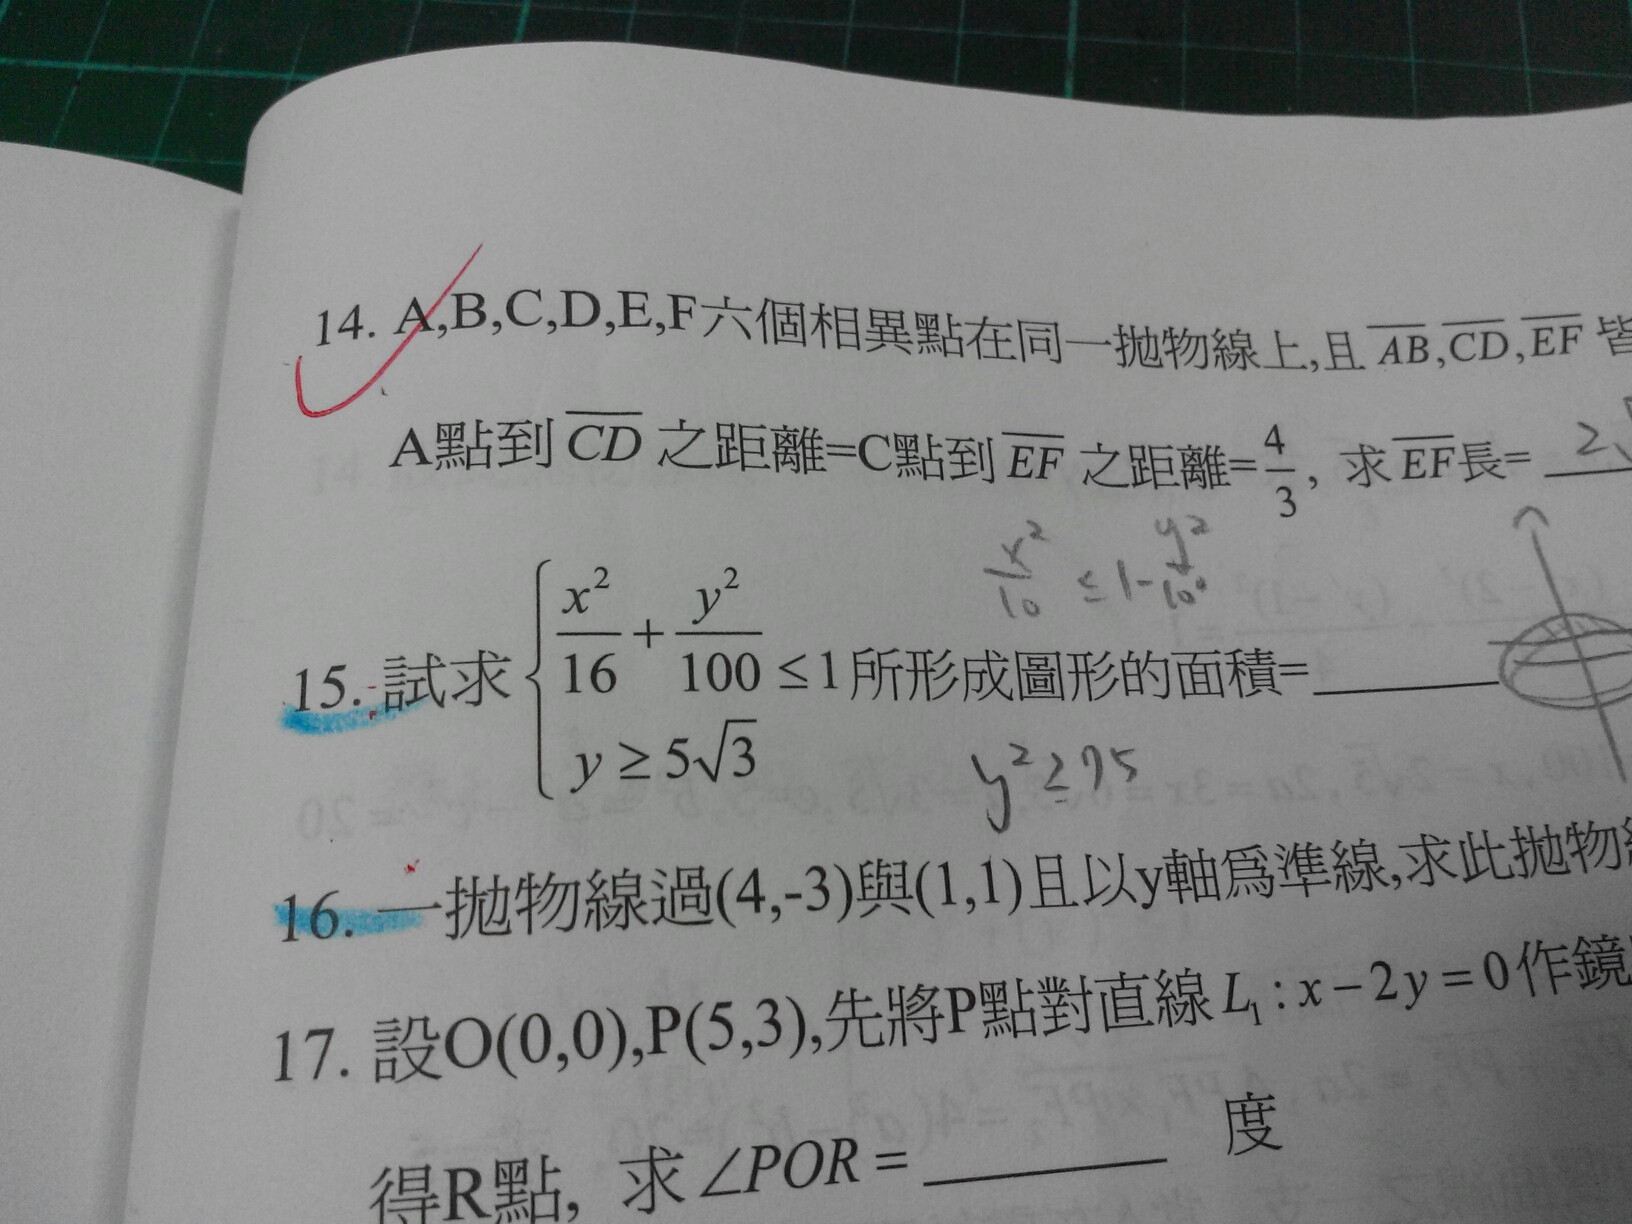 14. A,B,C,D,E,F六個相異點在同一拋物線上,且 AB,CD,EF 皆
A點到 CD 之距離=C點到 EF 之距離=4/3, 求 EF 長= 2√
x²/10 ≤ 1-y²/100
15. 試求 { x²/16 + y²/100 ≤1 所形成圖形的面積=______
y ≥ 5√3
y² ≥ 75
16. 一拋物線過(4,-3)與(1,1)且以y軸為準線,求此拋物
17. 設O(0,0),P(5,3),先將P點對直線 L₁ : x-2y=0 作鏡
得R點, 求 ∠POR = ______ 度